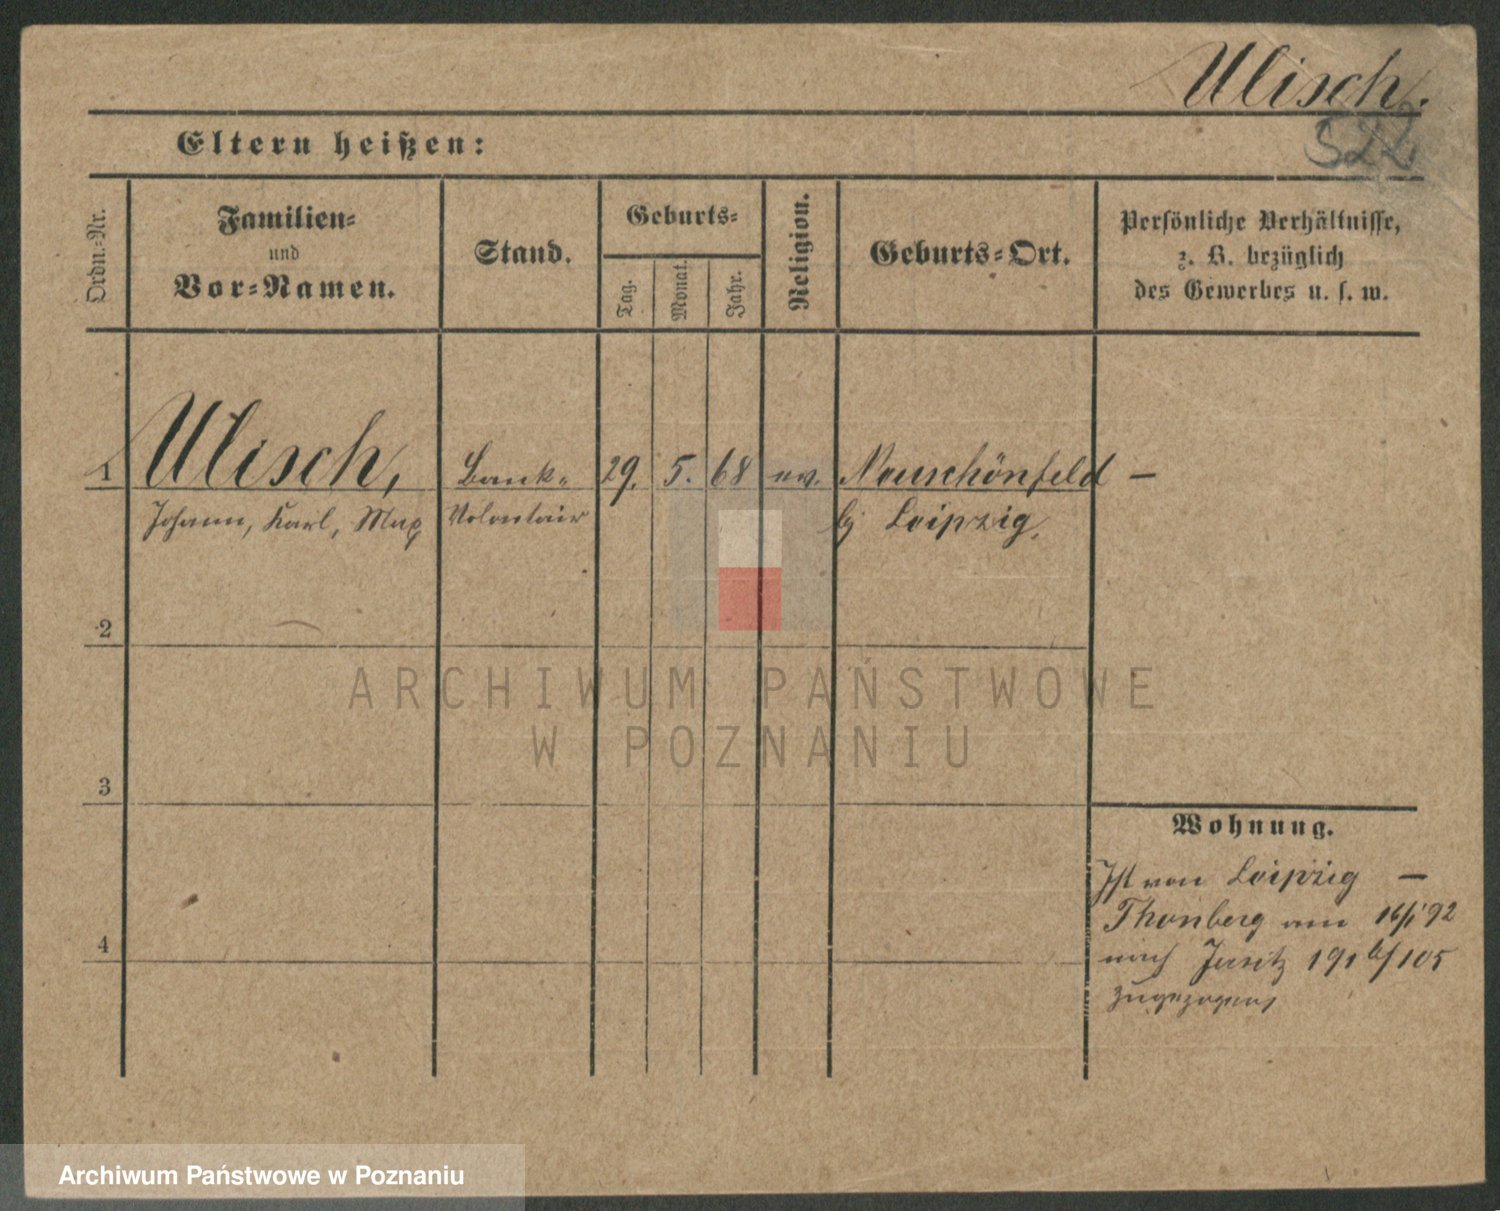 Ulisch.
522
Eltern heißen:
Ordn.-Nr.
Familien-
und
Vor-Namen.
Stand.
Geburts-
Tag.
Monat.
Jahr.
Religion.
Geburts-Ort.
Persönliche Verhältnisse,
z. B. bezüglich
des Gewerbes u. s. w.
1 Ulisch, Bank- 29. 5. 68 ev. Neuschönfeld —
Johann, Karl, Max Volontair b/ Leipzig.
2
3
4
Wohnung.
Ist von Leipzig —
Thonberg am 16/1 92
nach 191 6/105
zugezogen
ARCHIWUM PAŃSTWOWE
W POZNANIU
Archiwum Państwowe w Poznaniu